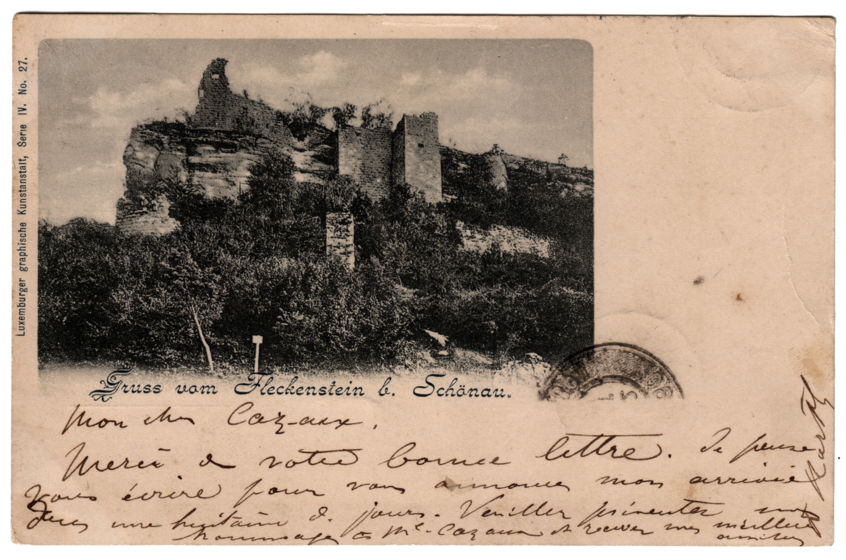 Luxemburger graphische Kunstanstalt, Serie IV. No. 27.
Gruss vom Fleckenstein b. Schönau.
Mon cher Cazaux,
Merci de votre bonne lettre. Je pense
vous écrire pour vous annoncer mon arrivée
dans une huitaine de jours. Veuillez présenter mes
hommages à Me Cazaux et recevez mes meilleures
amitiés